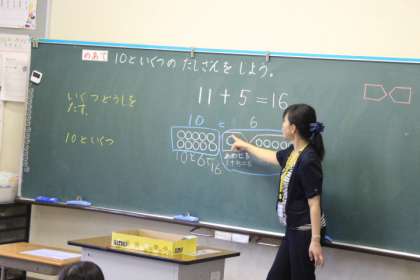 めあて 10といくつの たしざんを しよう。
11+5=16
いくつどうしを
たす。
10と 6
10といくつ
10と6で
16